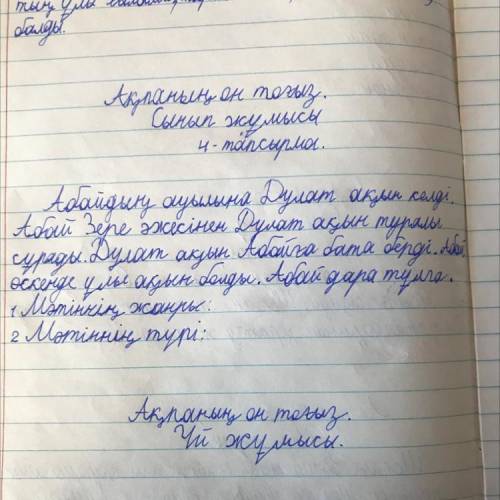 тың ұлы
болды.
Ақпаның он тоғыз.
Сынып жұмысы
4-тапсырма.
Абайдың ауылына Дулат ақын келді.
Абай Зере әжесінен Дулат ақын туралы
сұрады. Дулат ақын Абайға бата берді. Абай
өскенде ұлы ақын болды. Абай дара тұлға.
1 Мәтіннің жанры:
2 Мәтіннің түрі:
Ақпаның он тоғыз.
Үй жұмысы.